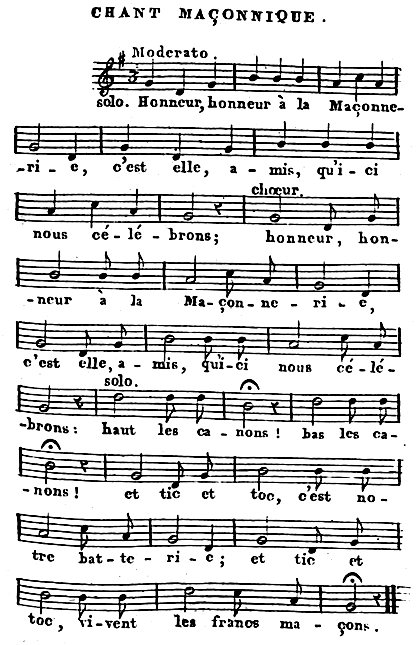 CHANT MAÇONNIQUE.
Moderato.
solo. Honneur, honneur à la Maçonne-
-ri-e, c'est elle, a-mis, qu'i-ci
chœur.
nous cé-lé-brons; honneur, hon-
-neur à la Ma-çon-ne-ri-e,
c'est elle, a-mis, qu'i-ci nous cé-lé-
solo.
-brons: haut les ca-nons! bas les ca-
-nons! et tic et toc, c'est no-
tre bat-te-ri-e; et tic et
toc, vi-vent les francs ma-çons.